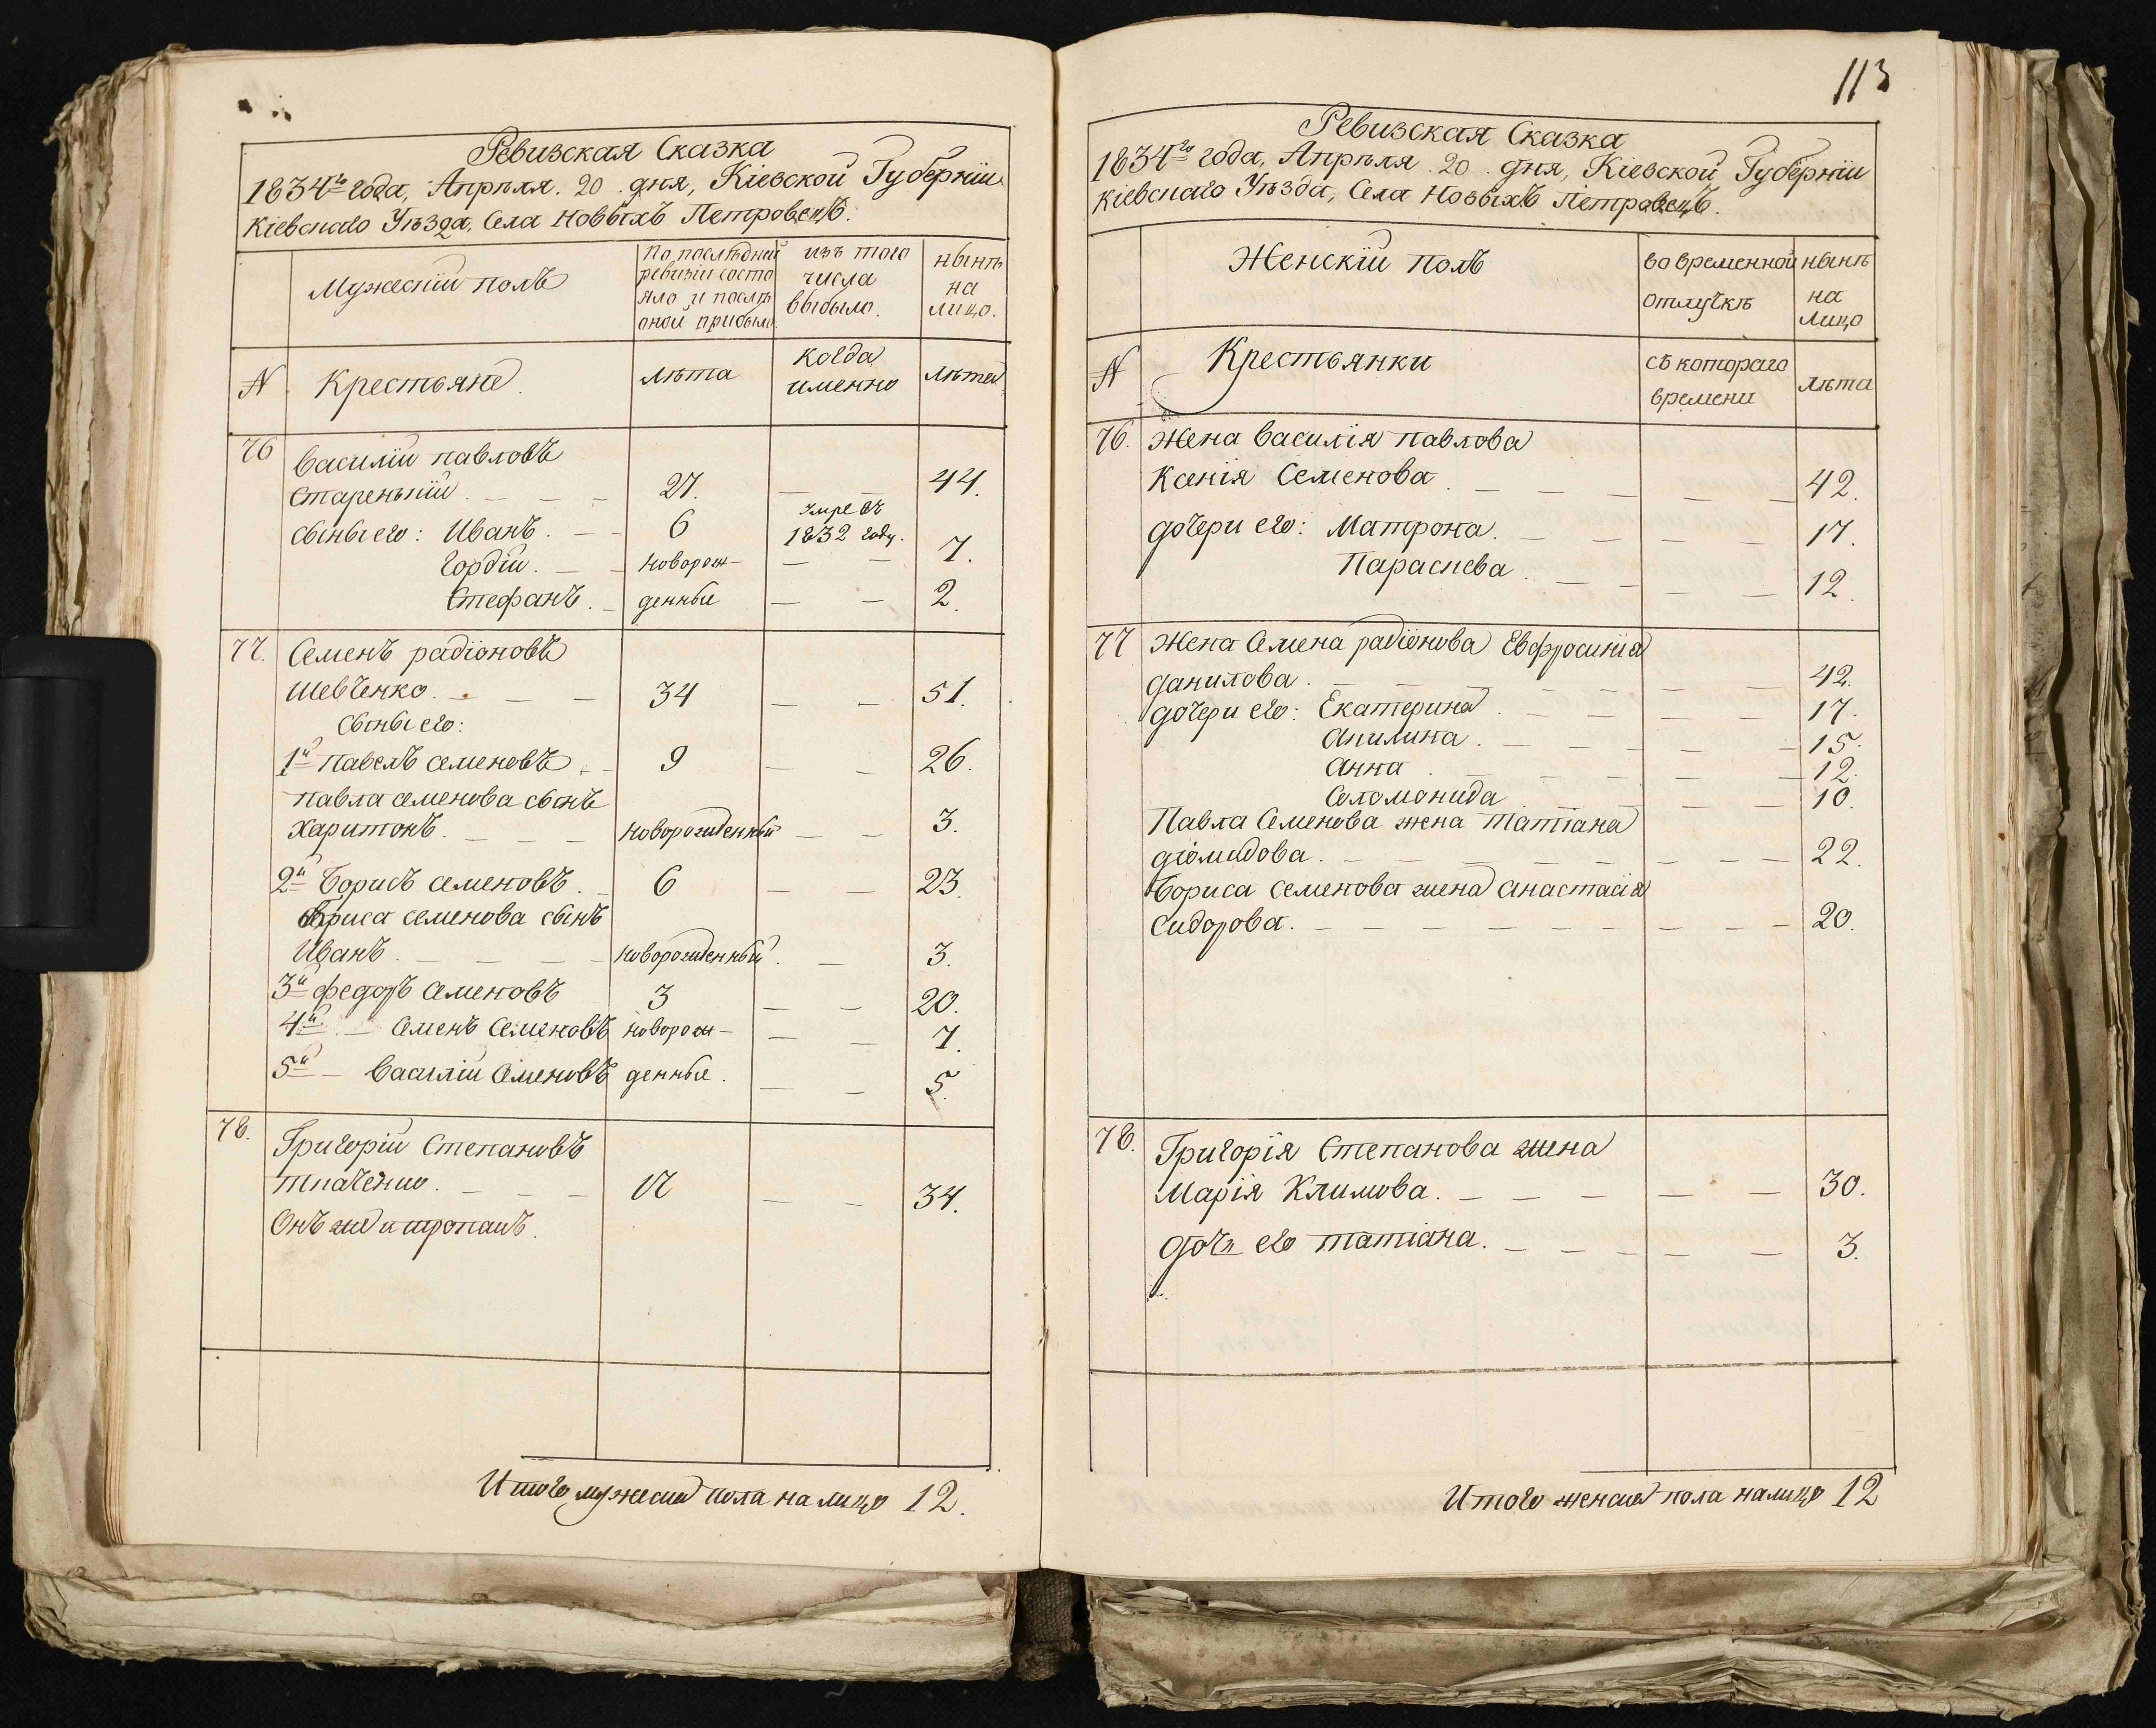 Ревизская Сказка
1834го года, Апрѣля. 20 дня, Кіевской Губерніи
Кіевскаго Уѣзда, Села Новыхъ Петровецъ.
Мужескій полъ
По послѣдней ревизіи состояло и послѣ оной прибыло.
изъ того числа выбыло.
нынѣ на лицо.
N Крестьяне.
лѣта
когда именно
лѣта
76 Василій павловъ
Старенькій. — — — 27. — — 44.
Сыны его: Иванъ. — — 6 умре въ 1832 году.
Гордій. — — новорож- — — 7.
Стефанъ. — денные — — 2.
77. Семенъ радіоновъ
Шевченко. — — — 34 — — 51.
Сыны его:
1й павелъ семеновъ — 9 — — 26.
павла семенова сынъ
Харитонъ. — — — новорожденный — — 3.
2й Борисъ семеновъ. — 6 — — 23.
Бориса семенова сынъ
Иванъ. — — — — новорожденный. — 3.
3й федоръ семеновъ 3 — — 20.
4й — Семенъ Семеновъ новорож- — — 7.
5й — Василій Семеновъ денные. — — 5.
78. Григорій Степановъ
Ткаченко. — — — 17 — — 34.
Онъ же
Итого мужеска пола на лицо 12.
113
Ревизская Сказка
1834го года, Апрѣля 20 дня, Кіевской Губерніи
Кіевскаго Уѣзда, Села Новыхъ Петровецъ.
Женскій полъ
во временной отлучкѣ
нынѣ на лицо
N Крестьянки
съ котораго времени
лѣта
76. Жена Василія павлова
Ксенія Семенова. — — — — — 42.
дочери его: Матрона. — — — — — 17.
Параскева. — — — — 12.
77 Жена Семена радіонова Евфросинія
данилова. — — — — — — — 42.
дочери его: Екатерина. — — — — — 17.
Акилина. — — — — — 15.
Анна. — — — — — — 12.
Соломонида — — — — — 10.
Павла Семенова жена Татіана
діомидова. — — — — — — — — 22.
Бориса семенова жена Анастасія
Сидорова. — — — — — — — — — 20.
78. Григорія Степанова жена
Марія Климова. — — — — — — 30.
Дочь его татіана. — — — — — 3.
Итого женска пола налицо 12